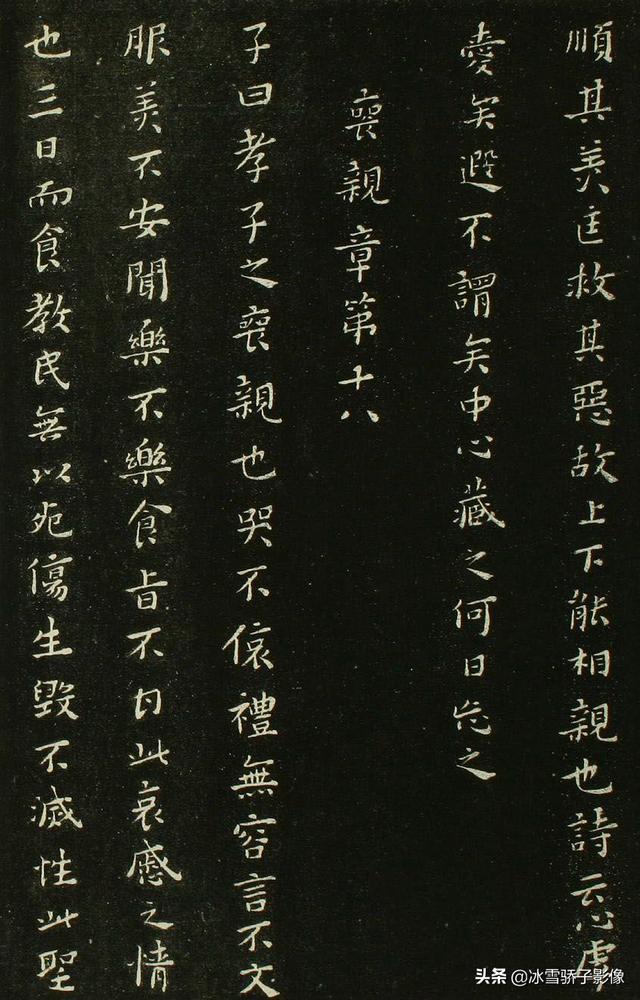 順其美匡救其惡故上下能相親也詩云心虖
愛矣遐不謂矣中心藏之何日忘之
喪親章第十八
子曰孝子之喪親也哭不偯禮無容言不文
服美不安聞樂不樂食旨不甘此哀慼之情
也三日而食教民無以死傷生毀不滅性此聖
头条 @冰雪骄子影像